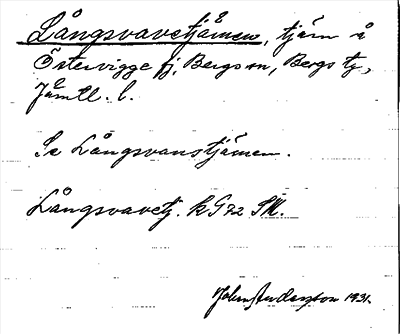 Långsvavetjämen, tjärn å
Östervigge fj, Bergs sn, Bergs tg,
Jämtl. l.
Se Långsvanstjämen.
Långsvavetj. kG72 SM.
John Anderzton 1931.